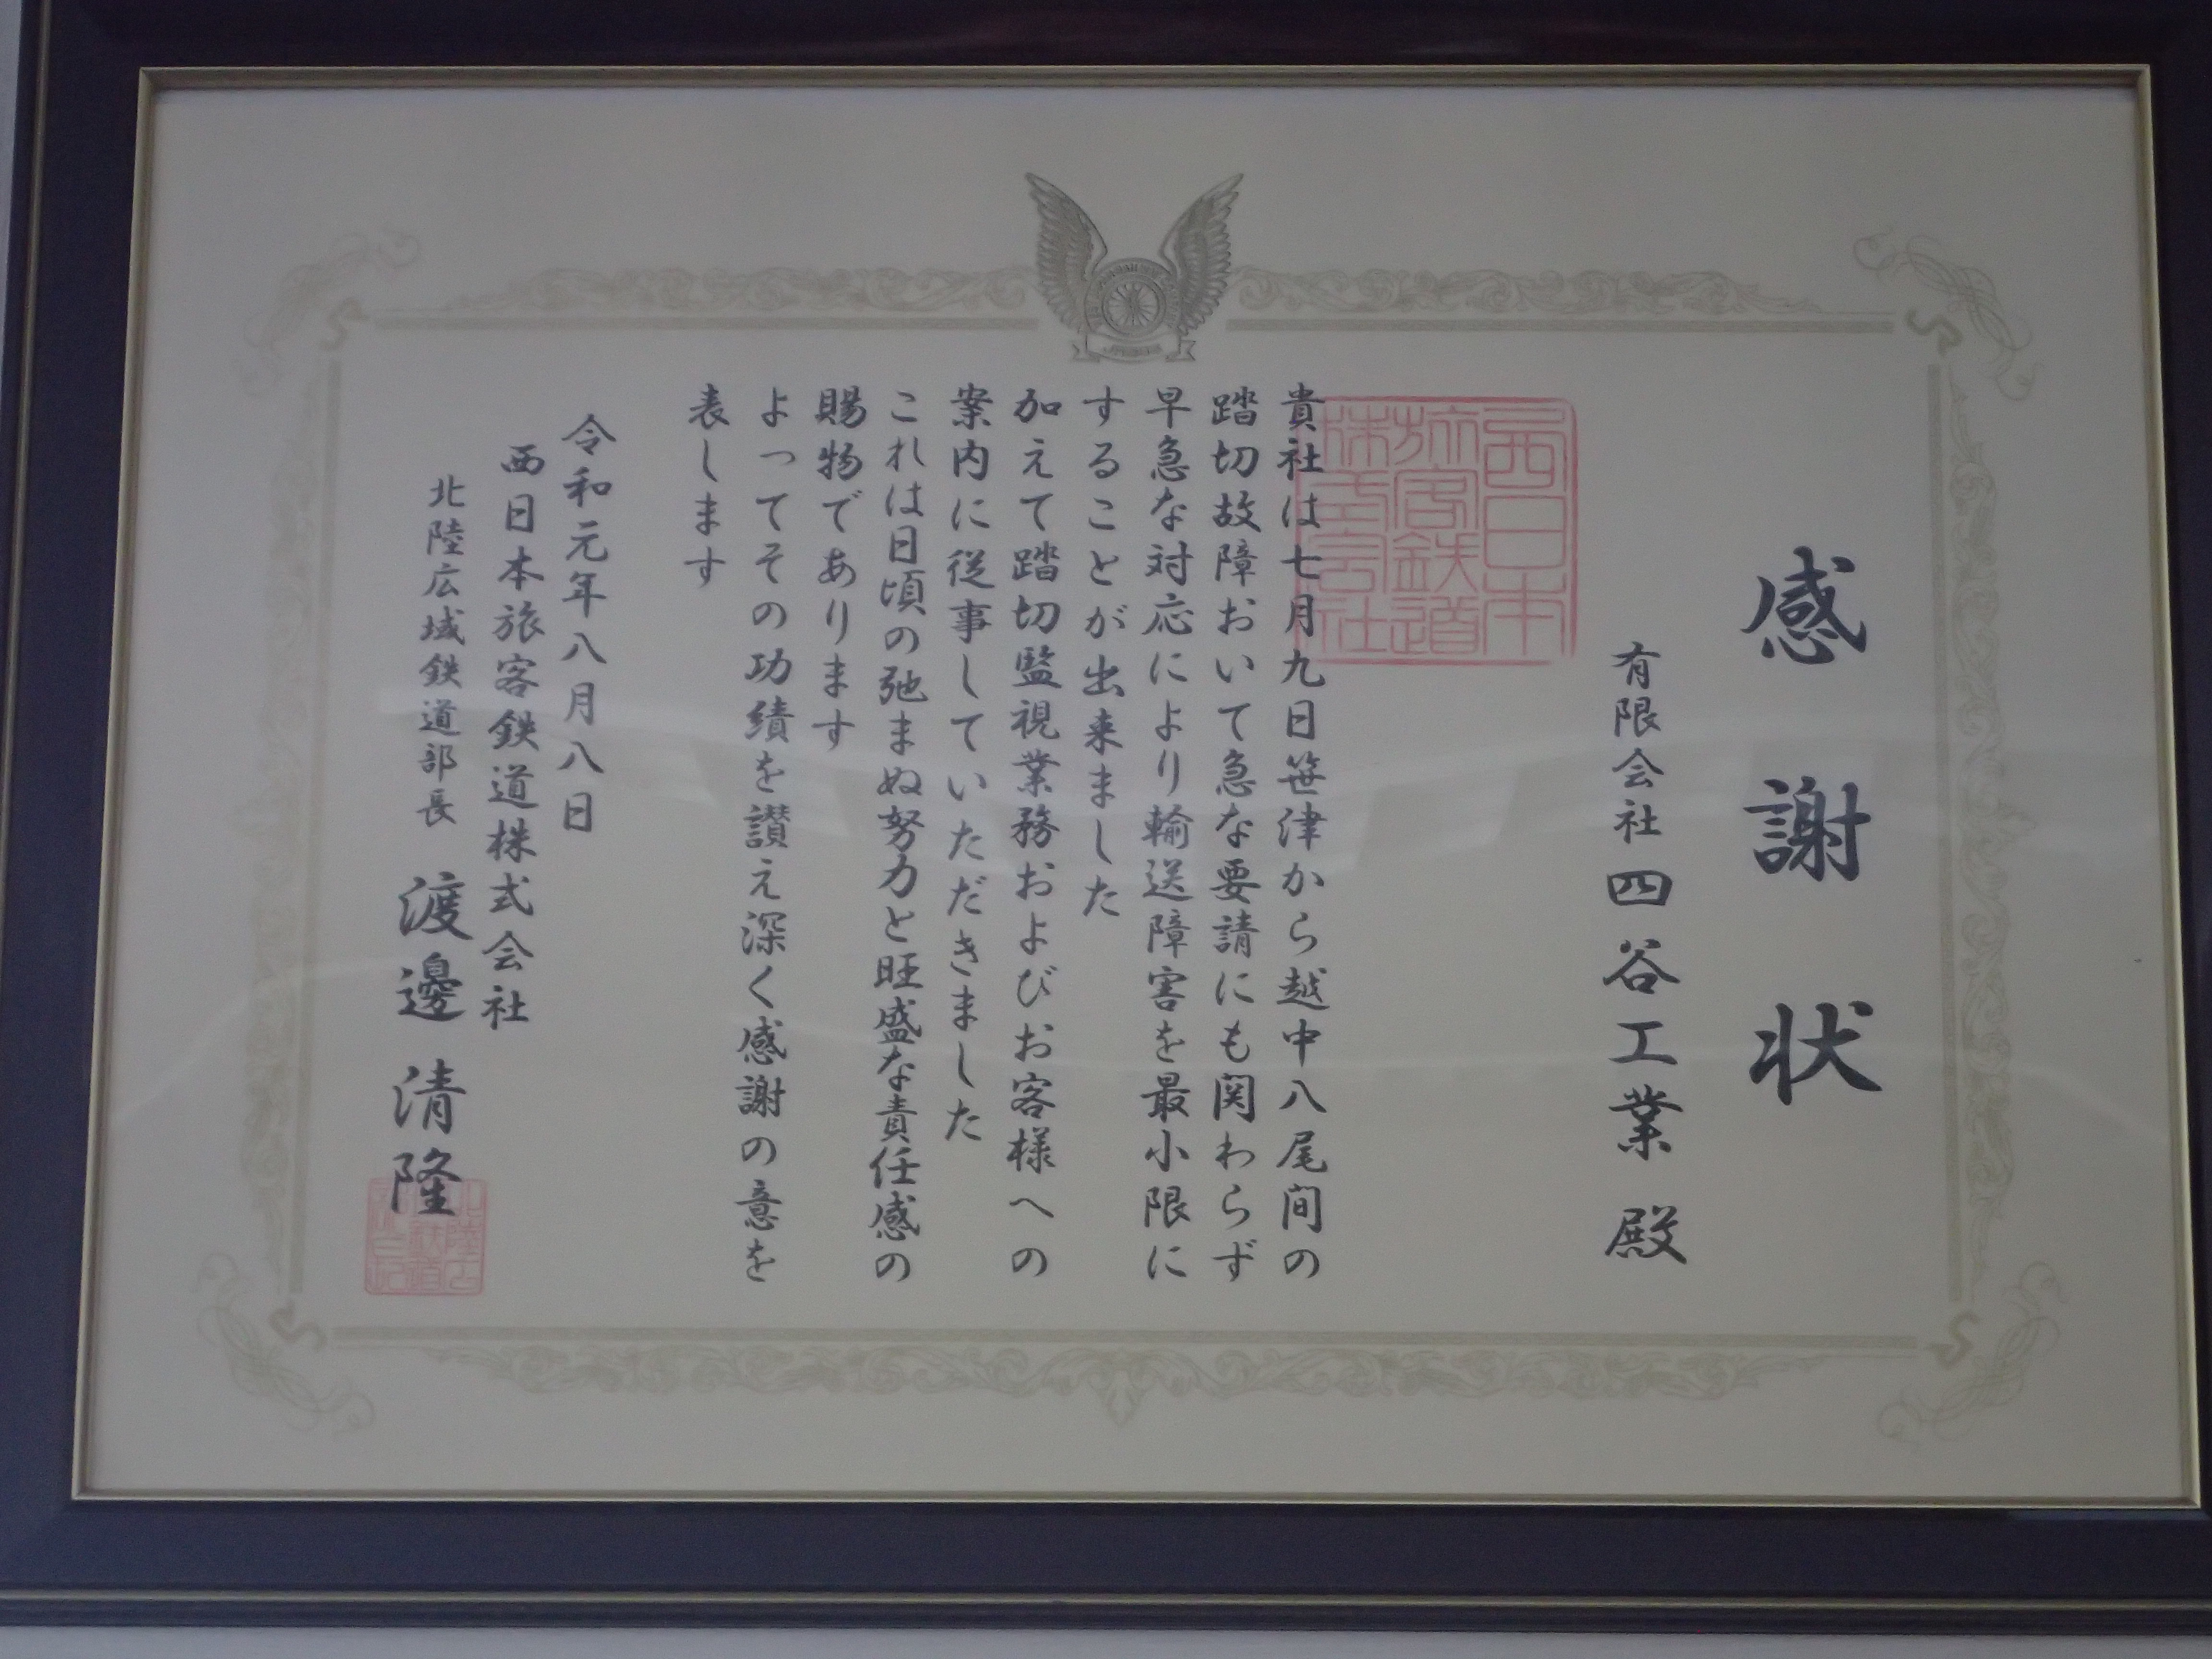 感謝状
有限会社四谷工業 殿
貴社は七月九日笹津から越中八尾間の
踏切故障おいて急な要請にも関わらず
早急な対応により輸送障害を最小限に
することが出来ました
加えて踏切監視業務およびお客様への
案内に従事していただきました
これは日頃の弛まぬ努力と旺盛な責任感の
賜物であります
よってその功績を讃え深く感謝の意を
表します
令和元年八月八日
西日本旅客鉄道株式会社
北陸広域鉄道部長 渡邊清隆
西日本
旅客鉄道
株式会社